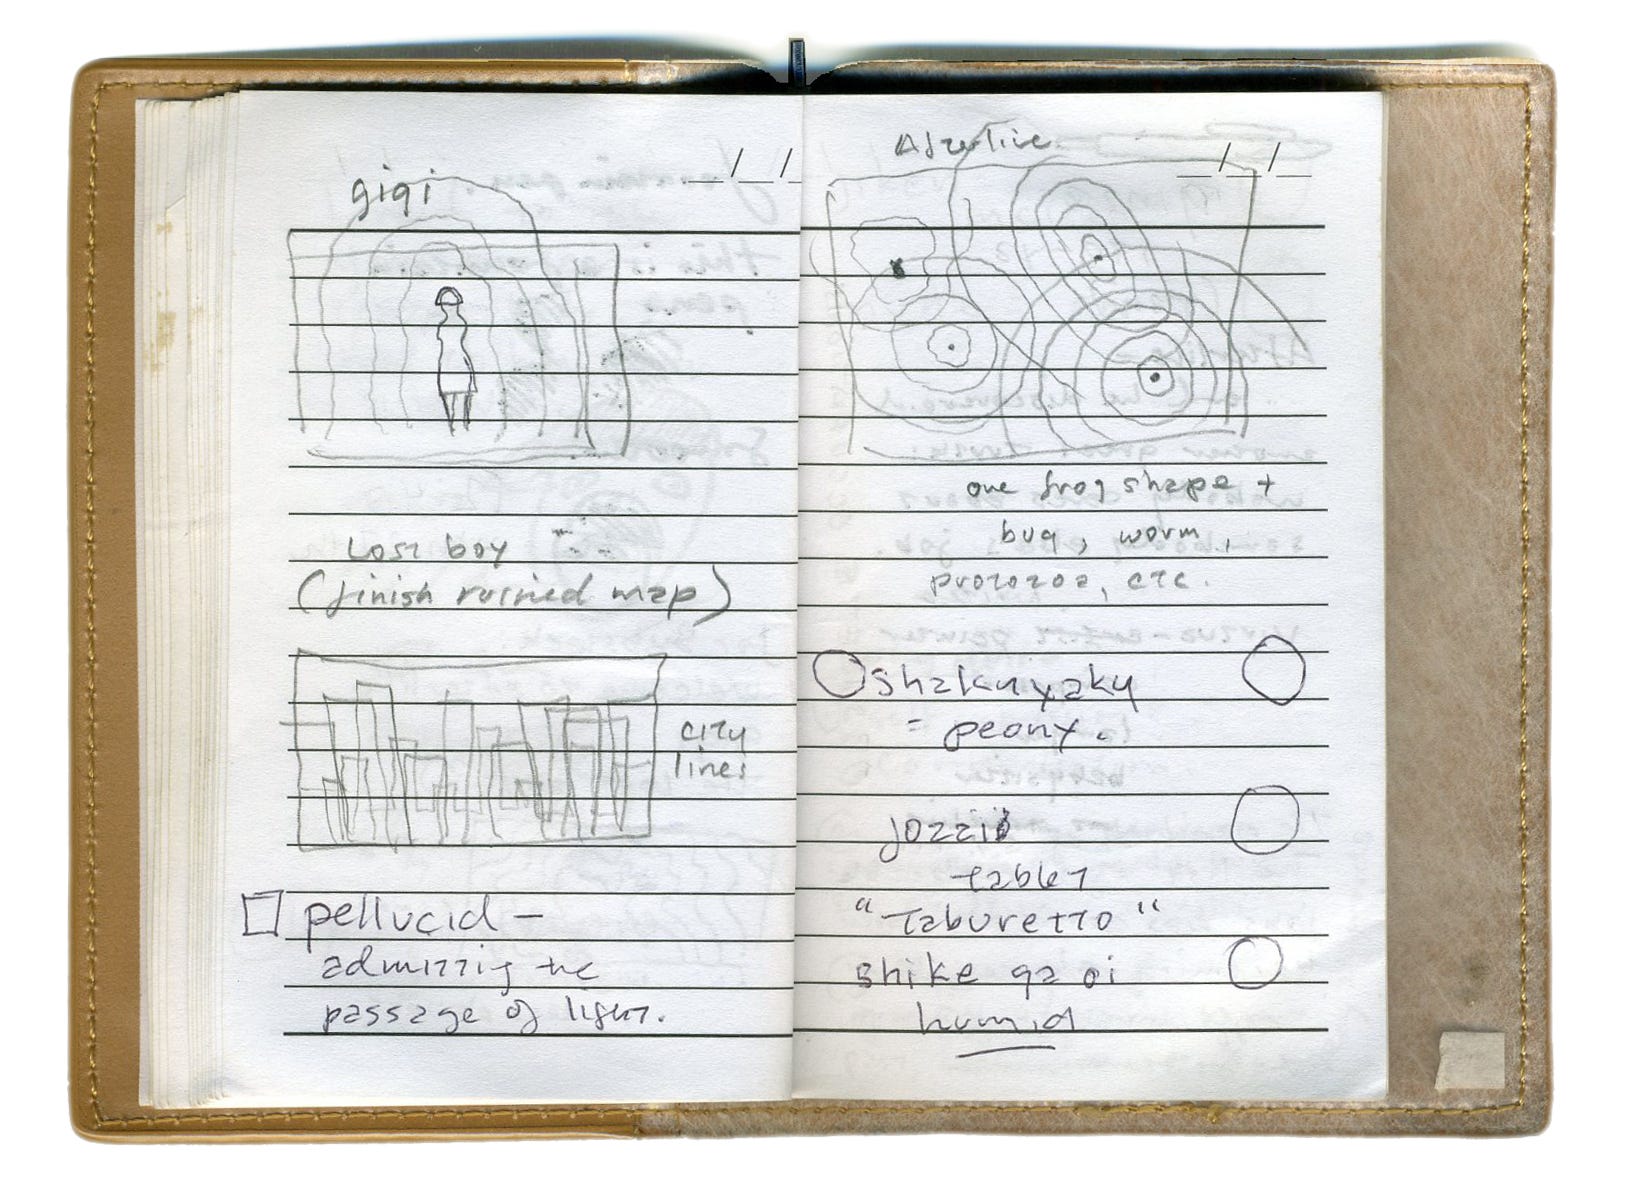 gigi
Lost boy
(finish ruined map)
city
lines
pellucid –
admitting the
passage of light.
one frog shape +
bug, worm,
protozoa, etc.
shakuyaku
= peony.
jozzi
tablet
"Taburetto"
shike ga oi
humid